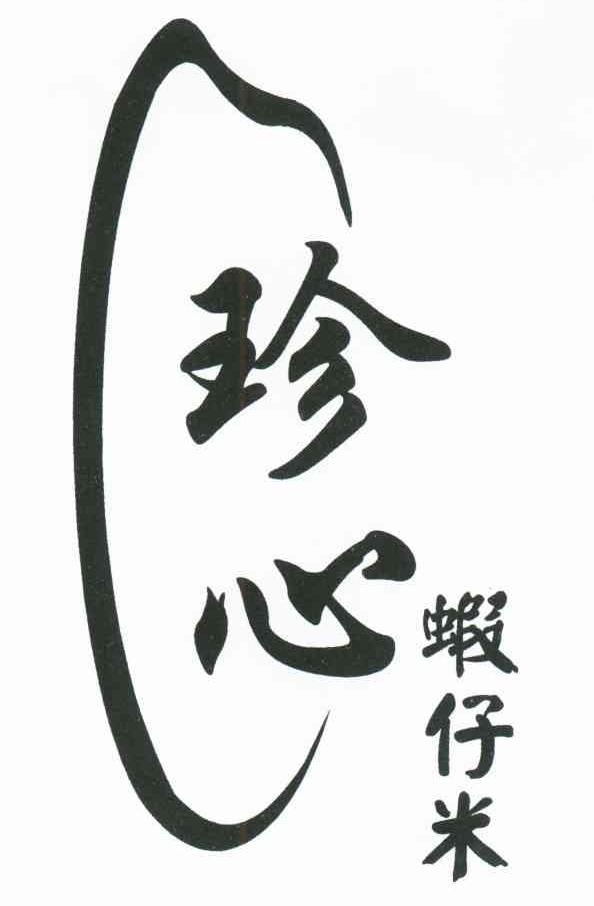 珍心
蝦仔米